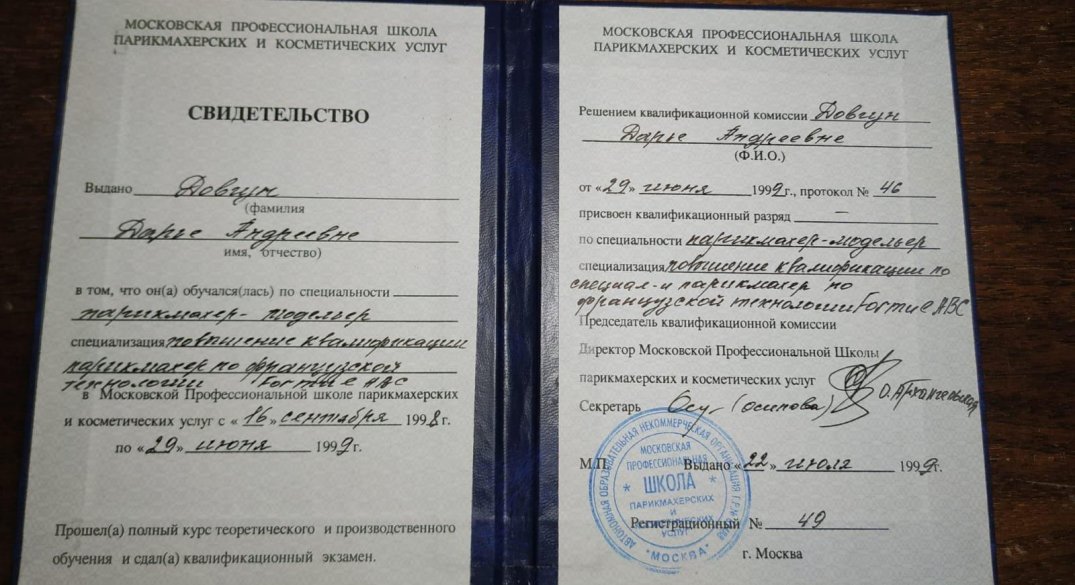 МОСКОВСКАЯ ПРОФЕССИОНАЛЬНАЯ ШКОЛА
ПАРИКМАХЕРСКИХ И КОСМЕТИЧЕСКИХ УСЛУГ
СВИДЕТЕЛЬСТВО
Выдано Довгун
(фамилия
Дарье Андреевне
имя, отчество)
в том, что он(а) обучался(лась) по специальности
парикмахер-модельер
специализация повышение квалификации
парикмахер по французской
технологии
в Московской Профессиональной школе парикмахерских
и косметических услуг с «16» сентября 1998г.
по «29» июня 1999г.
Прошел(а) полный курс теоретического и производственного
обучения и сдал(а) квалификационный экзамен.
МОСКОВСКАЯ ПРОФЕССИОНАЛЬНАЯ ШКОЛА
ПАРИКМАХЕРСКИХ И КОСМЕТИЧЕСКИХ УСЛУГ
Решением квалификационной комиссии Довгун
Дарье Андреевне
(Ф.И.О.)
от «29» июня 1999г., протокол № 46
присвоен квалификационный разряд —
по специальности парикмахер-модельер
специализация повышение квалификации по
специал-и парикмахер по
французской технологии
Председатель квалификационной комиссии
Директор Московской Профессиональной Школы
парикмахерских и косметических услуг
Секретарь (осипова)
М.П. Выдано «22» июля 1999г.
Регистрационный № 49
г. Москва
АВТОНОМНАЯ ОБРАЗОВАТЕЛЬНАЯ НЕКОММЕРЧЕСКАЯ ОРГАНИЗАЦИЯ
МОСКОВСКАЯ
ПРОФЕССИОНАЛЬНАЯ
ШКОЛА
ПАРИКМАХЕРСКИХ
И
КОСМЕТИЧЕСКИХ
УСЛУГ
"МОСКВА"